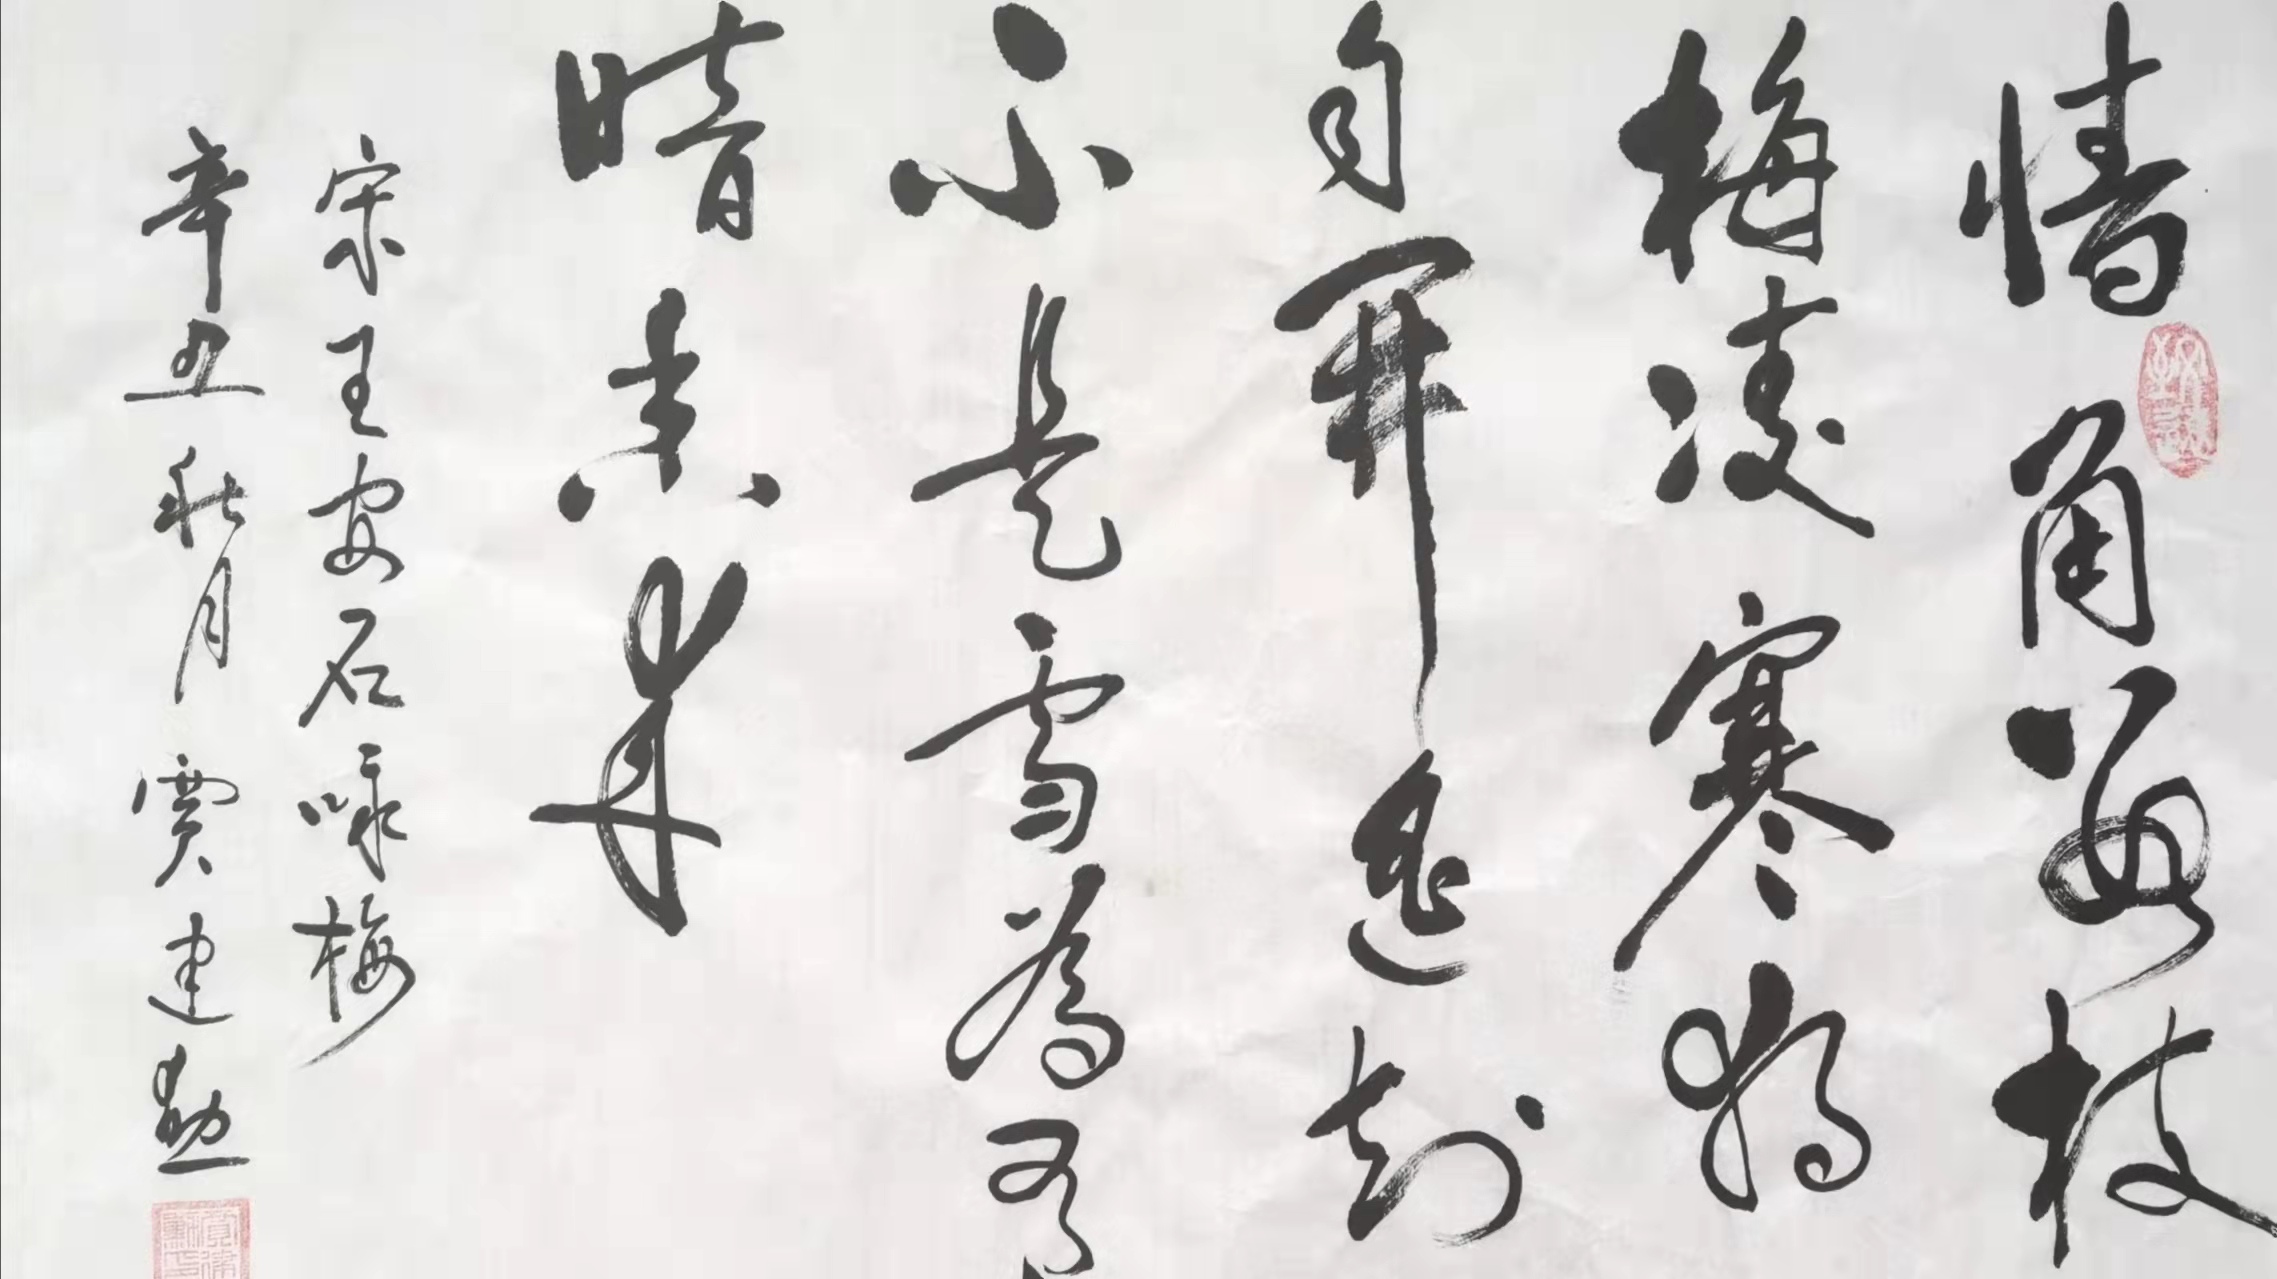 墙角数枝
梅凌寒独
自开遥知
不是雪为有
暗香来
宋王安石咏梅
辛丑秋月 贾建勳